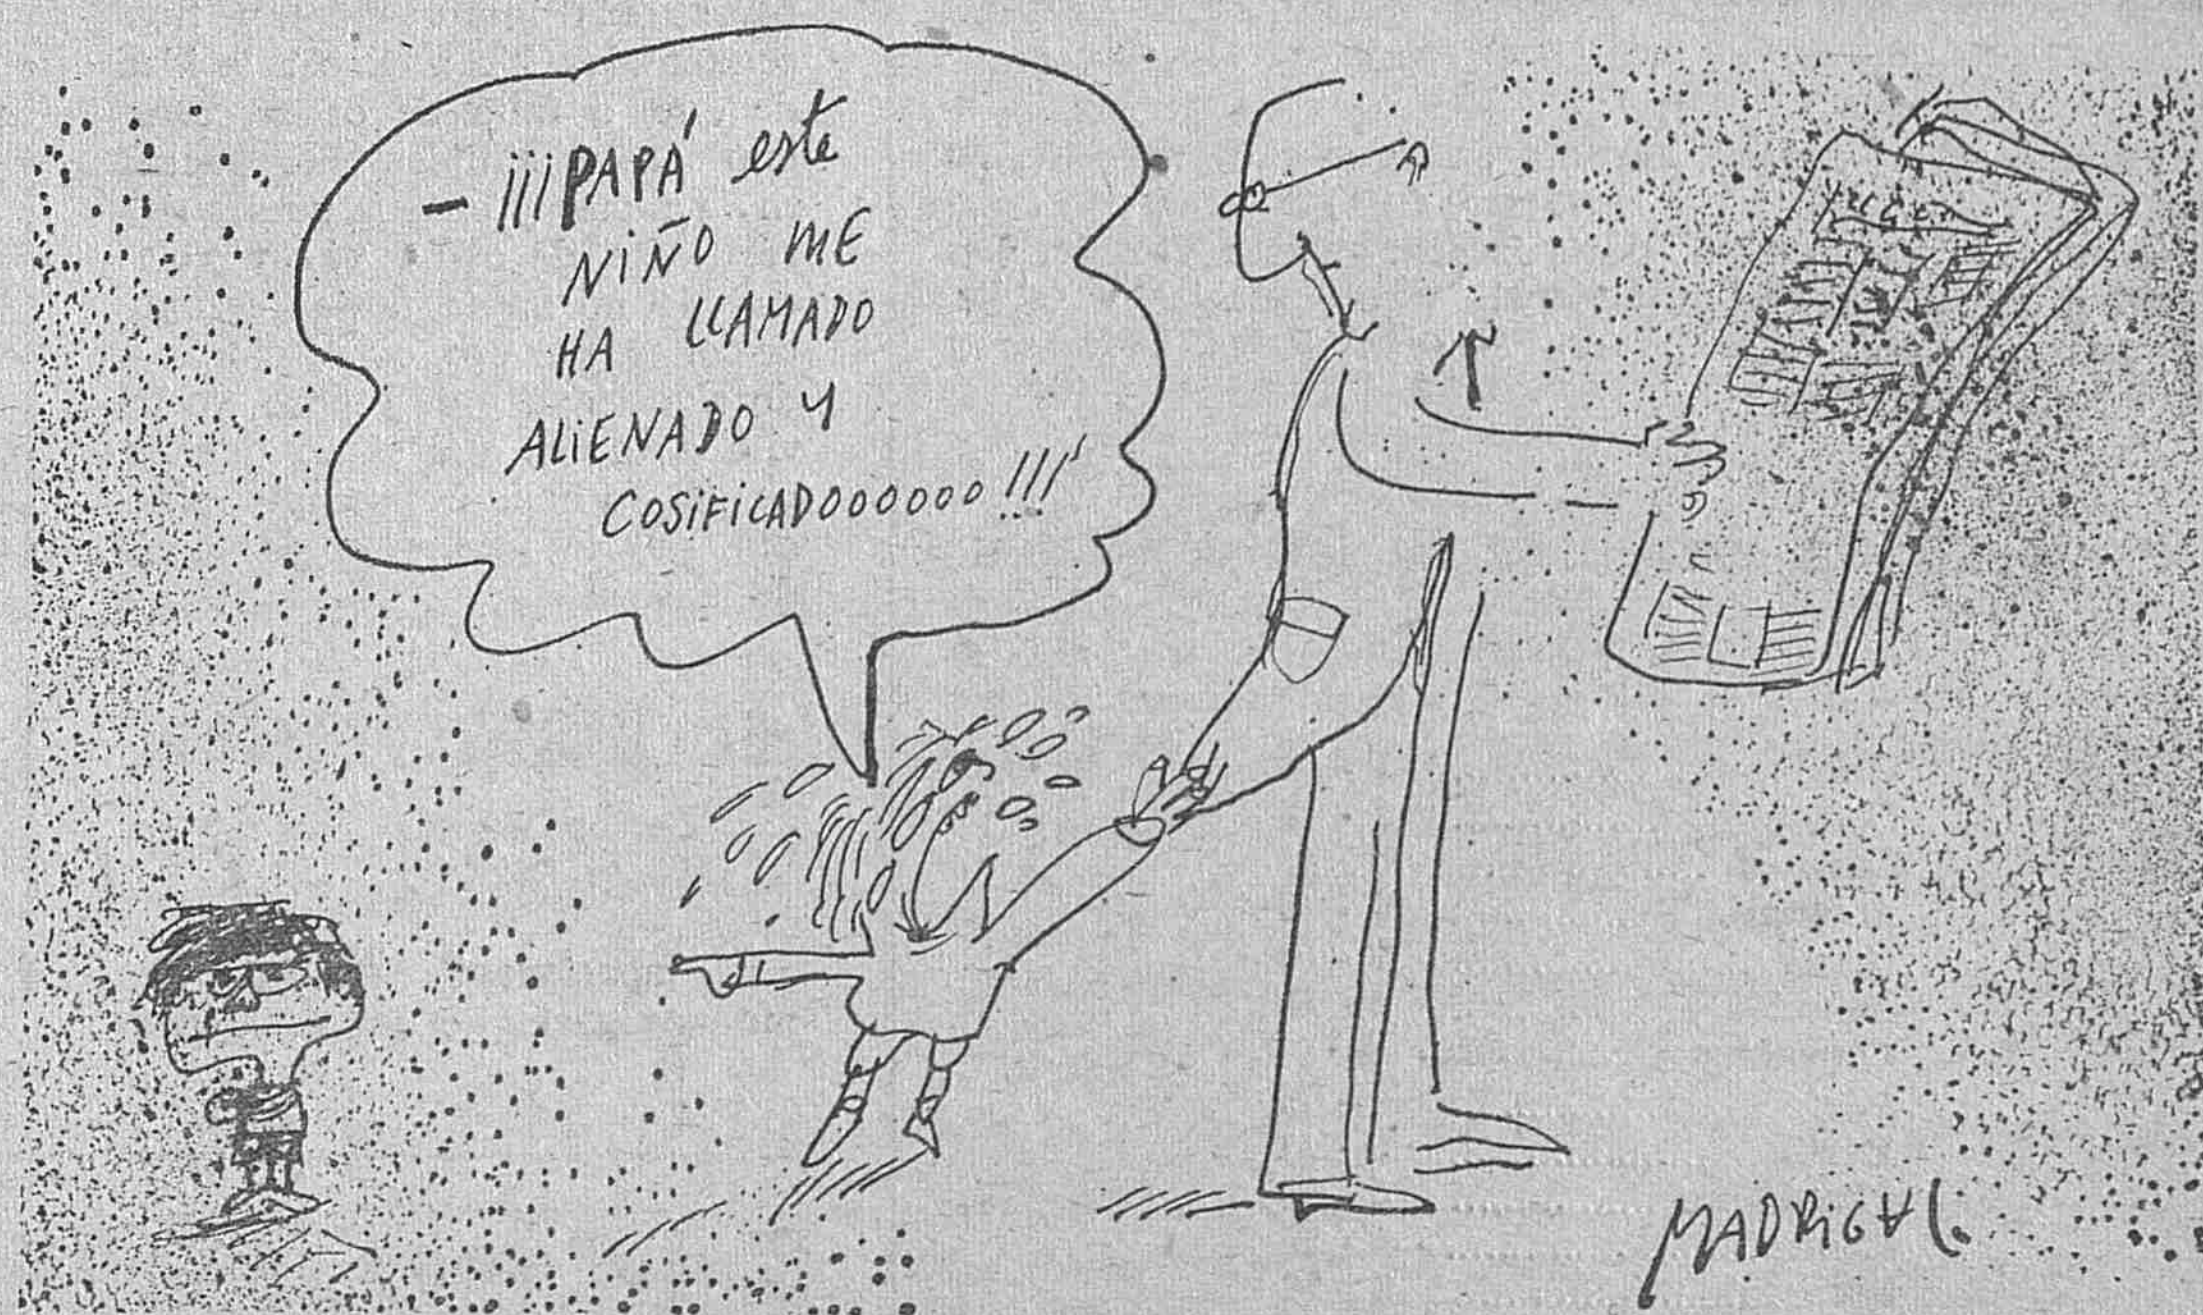 - ¡¡¡PAPÁ este
NIÑO ME
HA LLAMADO
ALIENADO Y
COSIFICADOOOOOO!!!
MADRIGAL